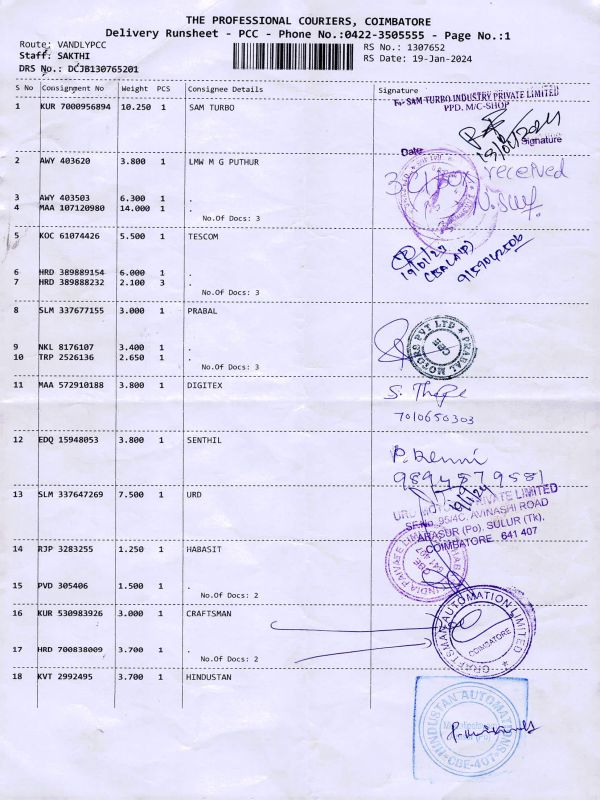 THE PROFESSIONAL COURIERS, COIMBATORE
Delivery Runsheet - PCC - Phone No.:0422-3505555 - Page No.:1
Route: VANDLYPCC
RS No.: 1307652
Staff: SAKTHI
RS Date: 19-Jan-2024
DRS No.: DCJB130765201
S No Consignment No Weight PCS Consignee Details Signature
1 KUR 7000956894 10.250 1 SAM TURBO
For SAM TURBO INDUSTRY PRIVATE LIMITED
PPD. M/C-SHOP
Signature
Date
2 AWY 403620 3.800 1 LMW M G PUTHUR
3 Box received
3 AWY 403503 6.300 1 .
4 MAA 107120980 14.000 1 .
No.Of Docs: 3
5 KOC 61074426 5.500 1 TESCOM
(BALAJI)
9159042506
6 HRD 389889154 6.000 1 .
7 HRD 389888232 2.100 3 .
No.Of Docs: 3
8 SLM 337677155 3.000 1 PRABAL
PRABAL MOTORS PVT LTD
CBE
9 NKL 8176107 3.400 1 .
10 TRP 2526136 2.650 1 .
No.Of Docs: 3
11 MAA 572910188 3.800 1 DIGITEX
7010650303
12 EDQ 15948053 3.800 1 SENTHIL
9894879581
13 SLM 337647269 7.500 1 URD
19/1/24
URD MOTORS PRIVATE LIMITED
SF.No. 95/4C, AVINASHI ROAD
ARASUR (Po), SULUR (Tk),
COIMBATORE 641 407
14 RJP 3283255 1.250 1 HABASIT
15 PVD 305406 1.500 1 .
No.Of Docs: 2
16 KUR 530983926 3.000 1 CRAFTSMAN
CRAFTSMAN AUTOMATION LIMITED
COIMBATORE
17 HRD 700838009 3.700 1 .
No.Of Docs: 2
18 KVT 2992495 3.700 1 HINDUSTAN
HINDUSTAN AUTOMATIONS
CBE-407